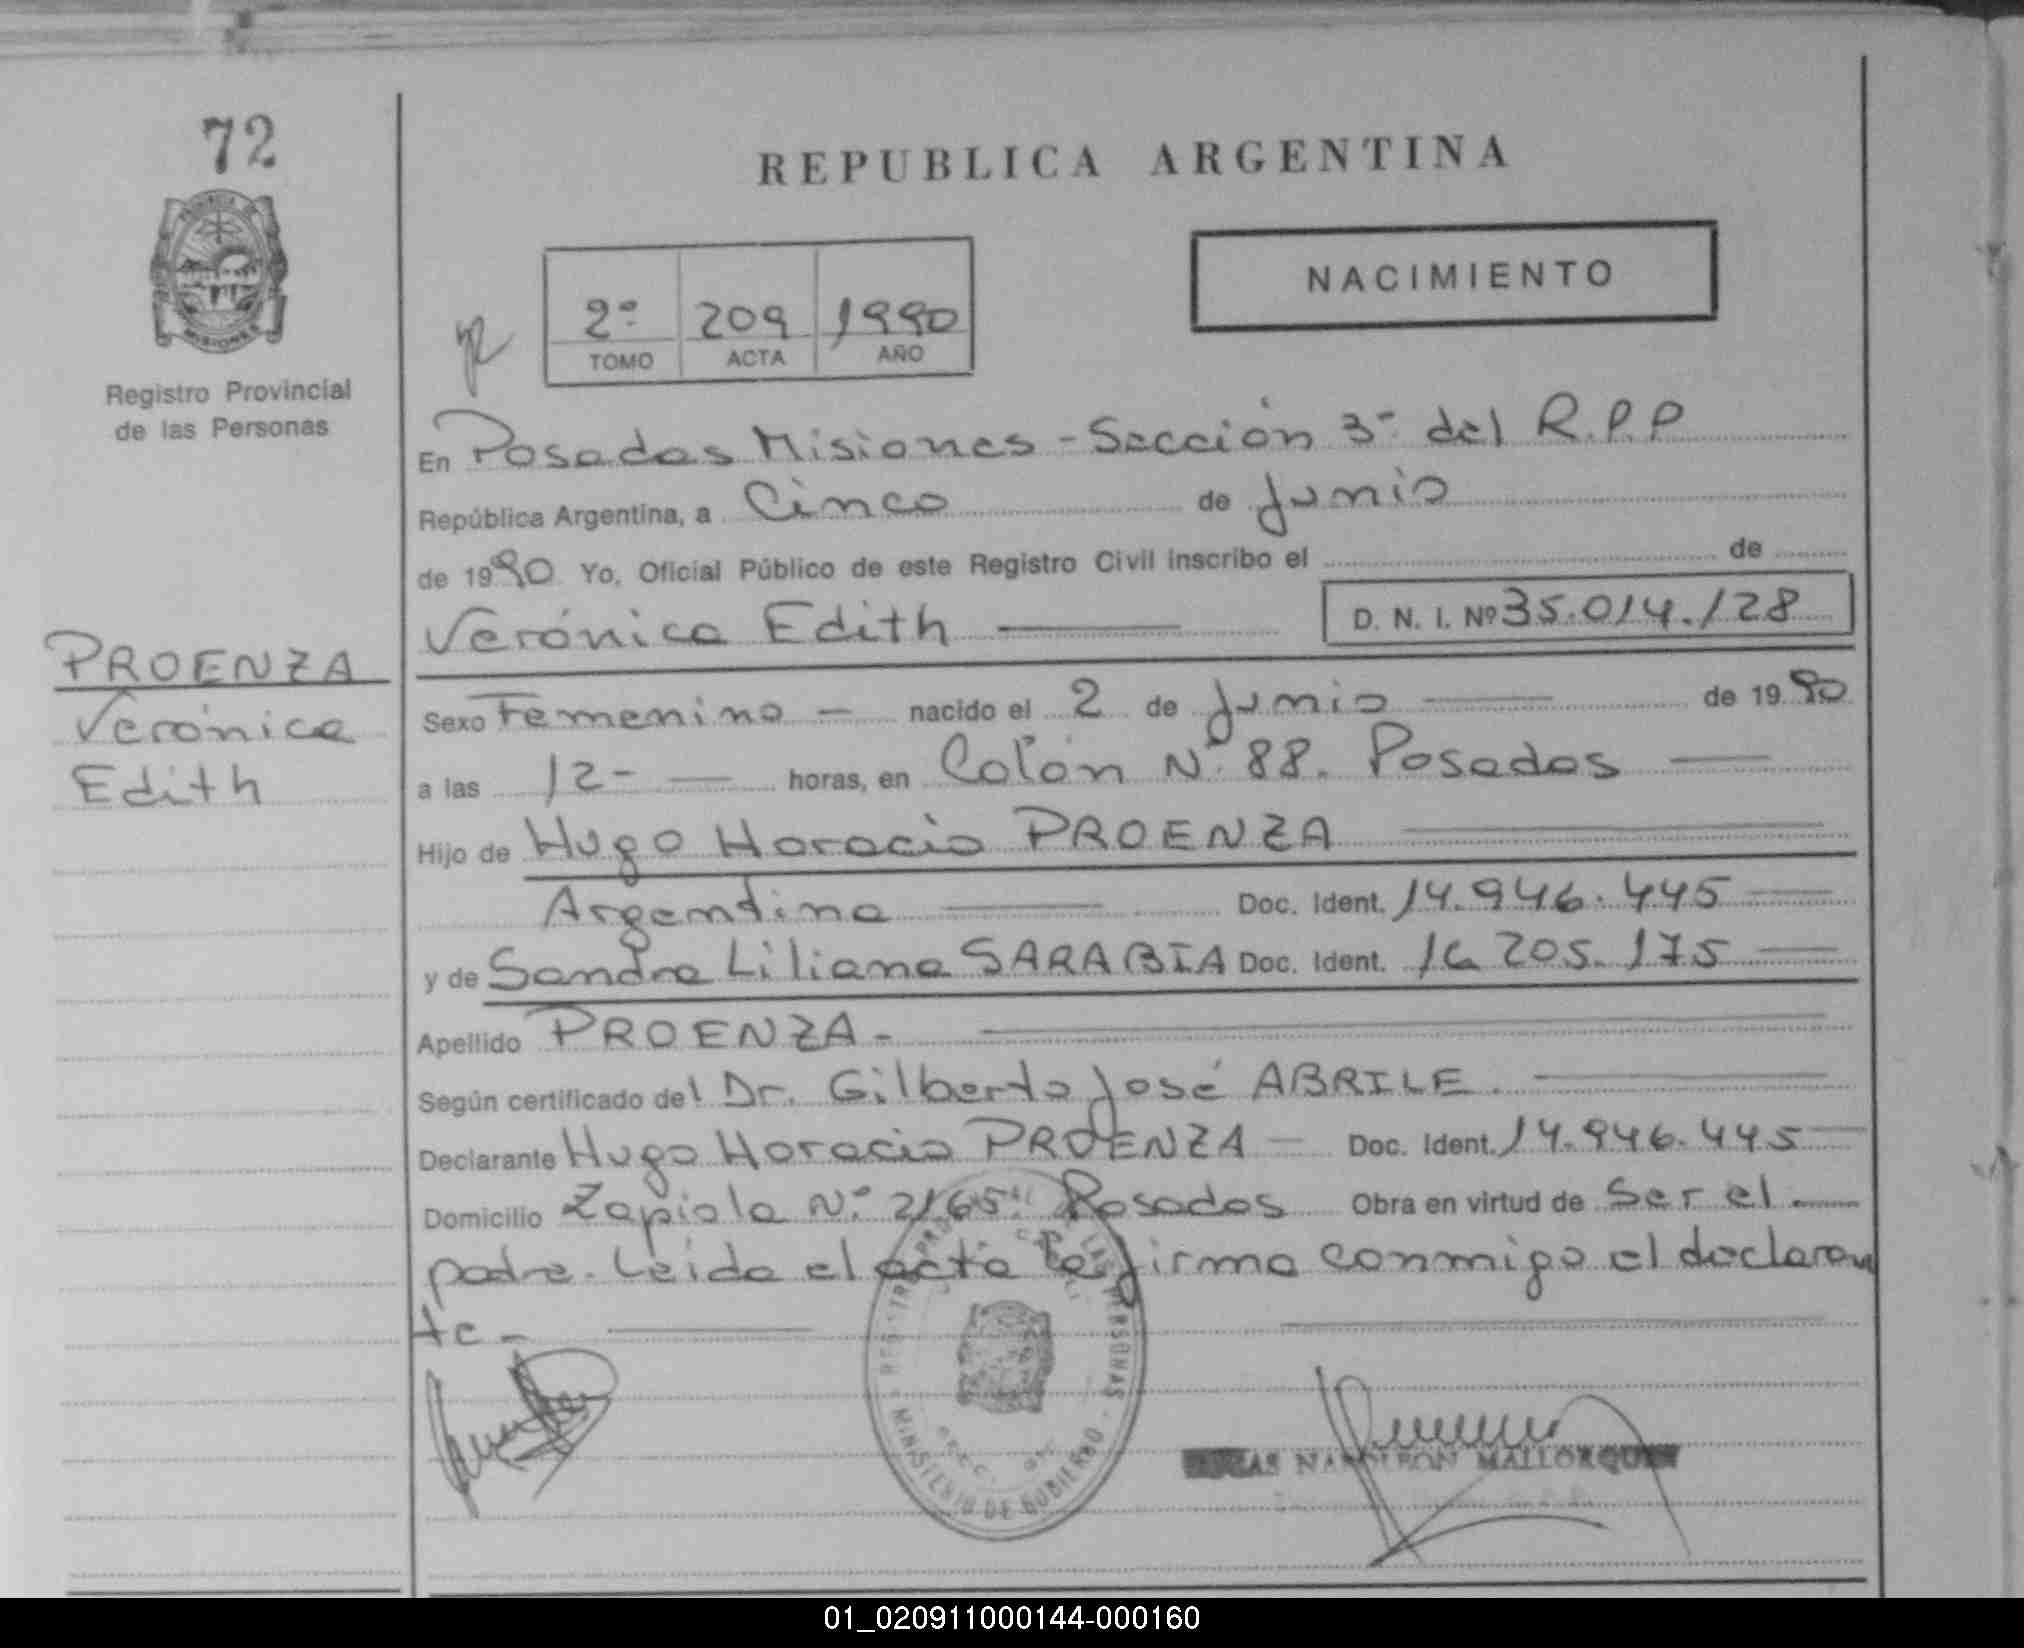 72
REPUBLICA ARGENTINA
PROVINCIA DE
MISIONES
NACIMIENTO
2º 209 1990
TOMO ACTA AÑO
Registro Provincial
de las Personas
En Posadas Misiones - Sección 3ª del R.P.P
República Argentina, a Cinco de Junio
de 1990 Yo, Oficial Público de este Registro Civil inscribo el de
Verónica Edith D. N. I. Nº 35.014.128
PROENZA
Verónica
Edith
Sexo Femenino - nacido el 2 de Junio de 1990
a las 12- horas, en Colón Nº 88. Posadas
Hijo de Hugo Horacio PROENZA
Argentina Doc. Ident. 14.946.445
y de Sandra Liliana SARABIA Doc. Ident. 16.205.175
Apellido PROENZA-
Según certificado del Dr. Gilberto José ABRILE.
Declarante Hugo Horacio PROENZA - Doc. Ident. 14.946.445
Domicilio Zapiola Nº 2165. Posadas Obra en virtud de Ser el
padre. Leida el acta la firma conmigo el declaran
te.-
MINISTERIO DE GOBIERNO
LAS PERSONAS
NAPOLEON MALLORQUIN
01_020911000144-000160